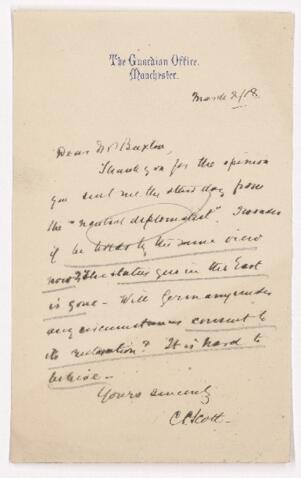 The Guardian Office.
Manchester.
March 2/18.
Dear Mr Buxton,
Thank you for the opinion
you sent me the other day from
the "neutral diplomatist". I wonder
if he holds by the same view
now? The status quo in the East
is gone. Will Germany under
any circumstances consent to
its restoration? It is hard to
believe.
Yours sincerely
C P Scott.